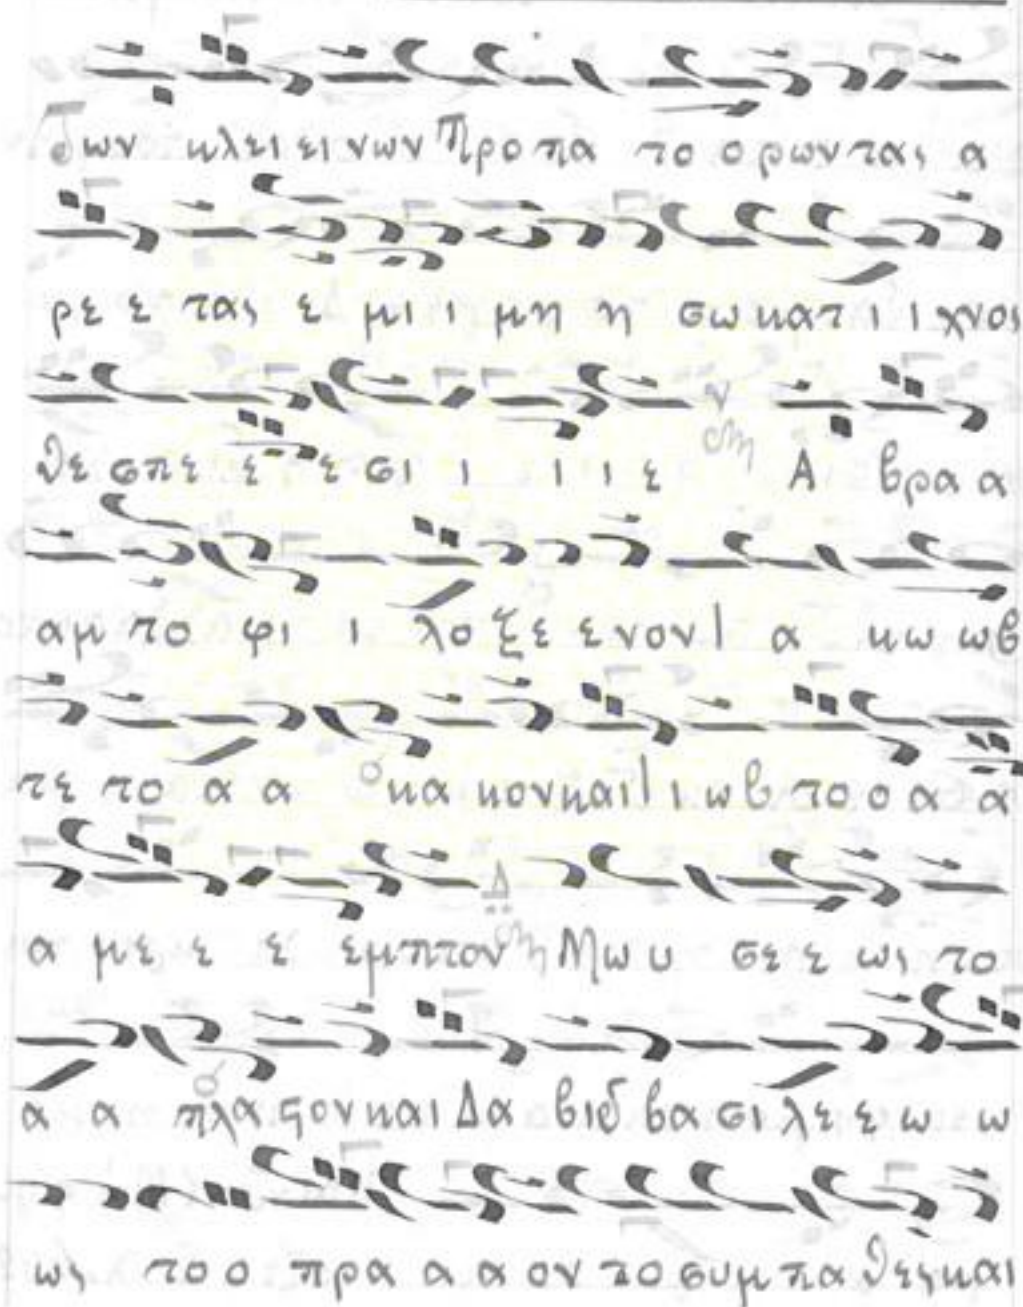 Των κλει ει νων Προ πα το ο ρων τας α
ρε ε τας ε μι ι μη η σω κατ ι ι χνος
θε σπε ε ε σι ι ι ι ε Α βρα α
αμ το φι ι λο ξε ε νον Ι α κω ωβ
τε το α α κα κον και Ι ι ωβ το ο α α
α με ε ε εμπτον Μω υ σε ε ως το
α α πλα στον και Δα βιδ βα σι λε ε ω ω
ως το ο πρα α α ον το συμ πα θες και